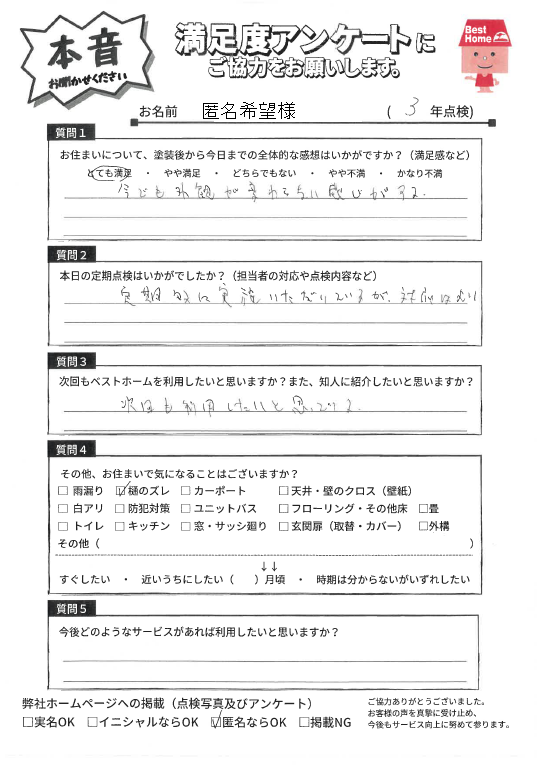 本音
お聞かせください
満足度アンケートに
ご協力をお願いします。
Best
Home
お名前 匿名希望様 ( 3 年点検)
質問1
お住まいについて、塗装後から今日までの全体的な感想はいかがですか？（満足感など）
とても満足 ・ やや満足 ・ どちらでもない ・ やや不満 ・ かなり不満
今でも外観が変わらない感じがする。
質問2
本日の定期点検はいかがでしたか？（担当者の対応や点検内容など）
定期的に実施いただいているが、対応はよい
質問3
次回もベストホームを利用したいと思いますか？また、知人に紹介したいと思いますか？
次回も利用したいと思っている。
質問4
その他、お住まいで気になることはございますか？
□ 雨漏り ☑ 樋のズレ □ カーポート □ 天井・壁のクロス（壁紙）
□ 白アリ □ 防犯対策 □ ユニットバス □ フローリング・その他床 □畳
□ トイレ □ キッチン □ 窓・サッシ廻り □ 玄関扉（取替・カバー） □外構
その他（ ）
↓↓
すぐしたい ・ 近いうちにしたい（ ）月頃 ・ 時期は分からないがいずれしたい
質問5
今後どのようなサービスがあれば利用したいと思いますか？
弊社ホームページへの掲載（点検写真及びアンケート）
□実名OK □イニシャルならOK ☑匿名ならOK □掲載NG
ご協力ありがとうございました。
お客様の声を真摯に受け止め、
今後もサービス向上に努めて参ります。